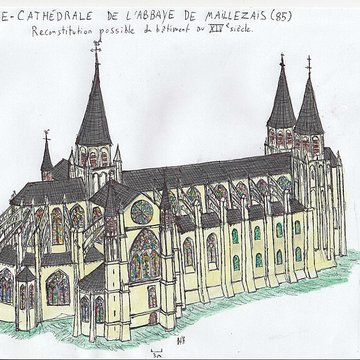 E-CATHÉDRALE DE L'ABBAYE DE MAILLEZAIS (85)
Reconstitution possible du bâtiment au XIVe siècle.